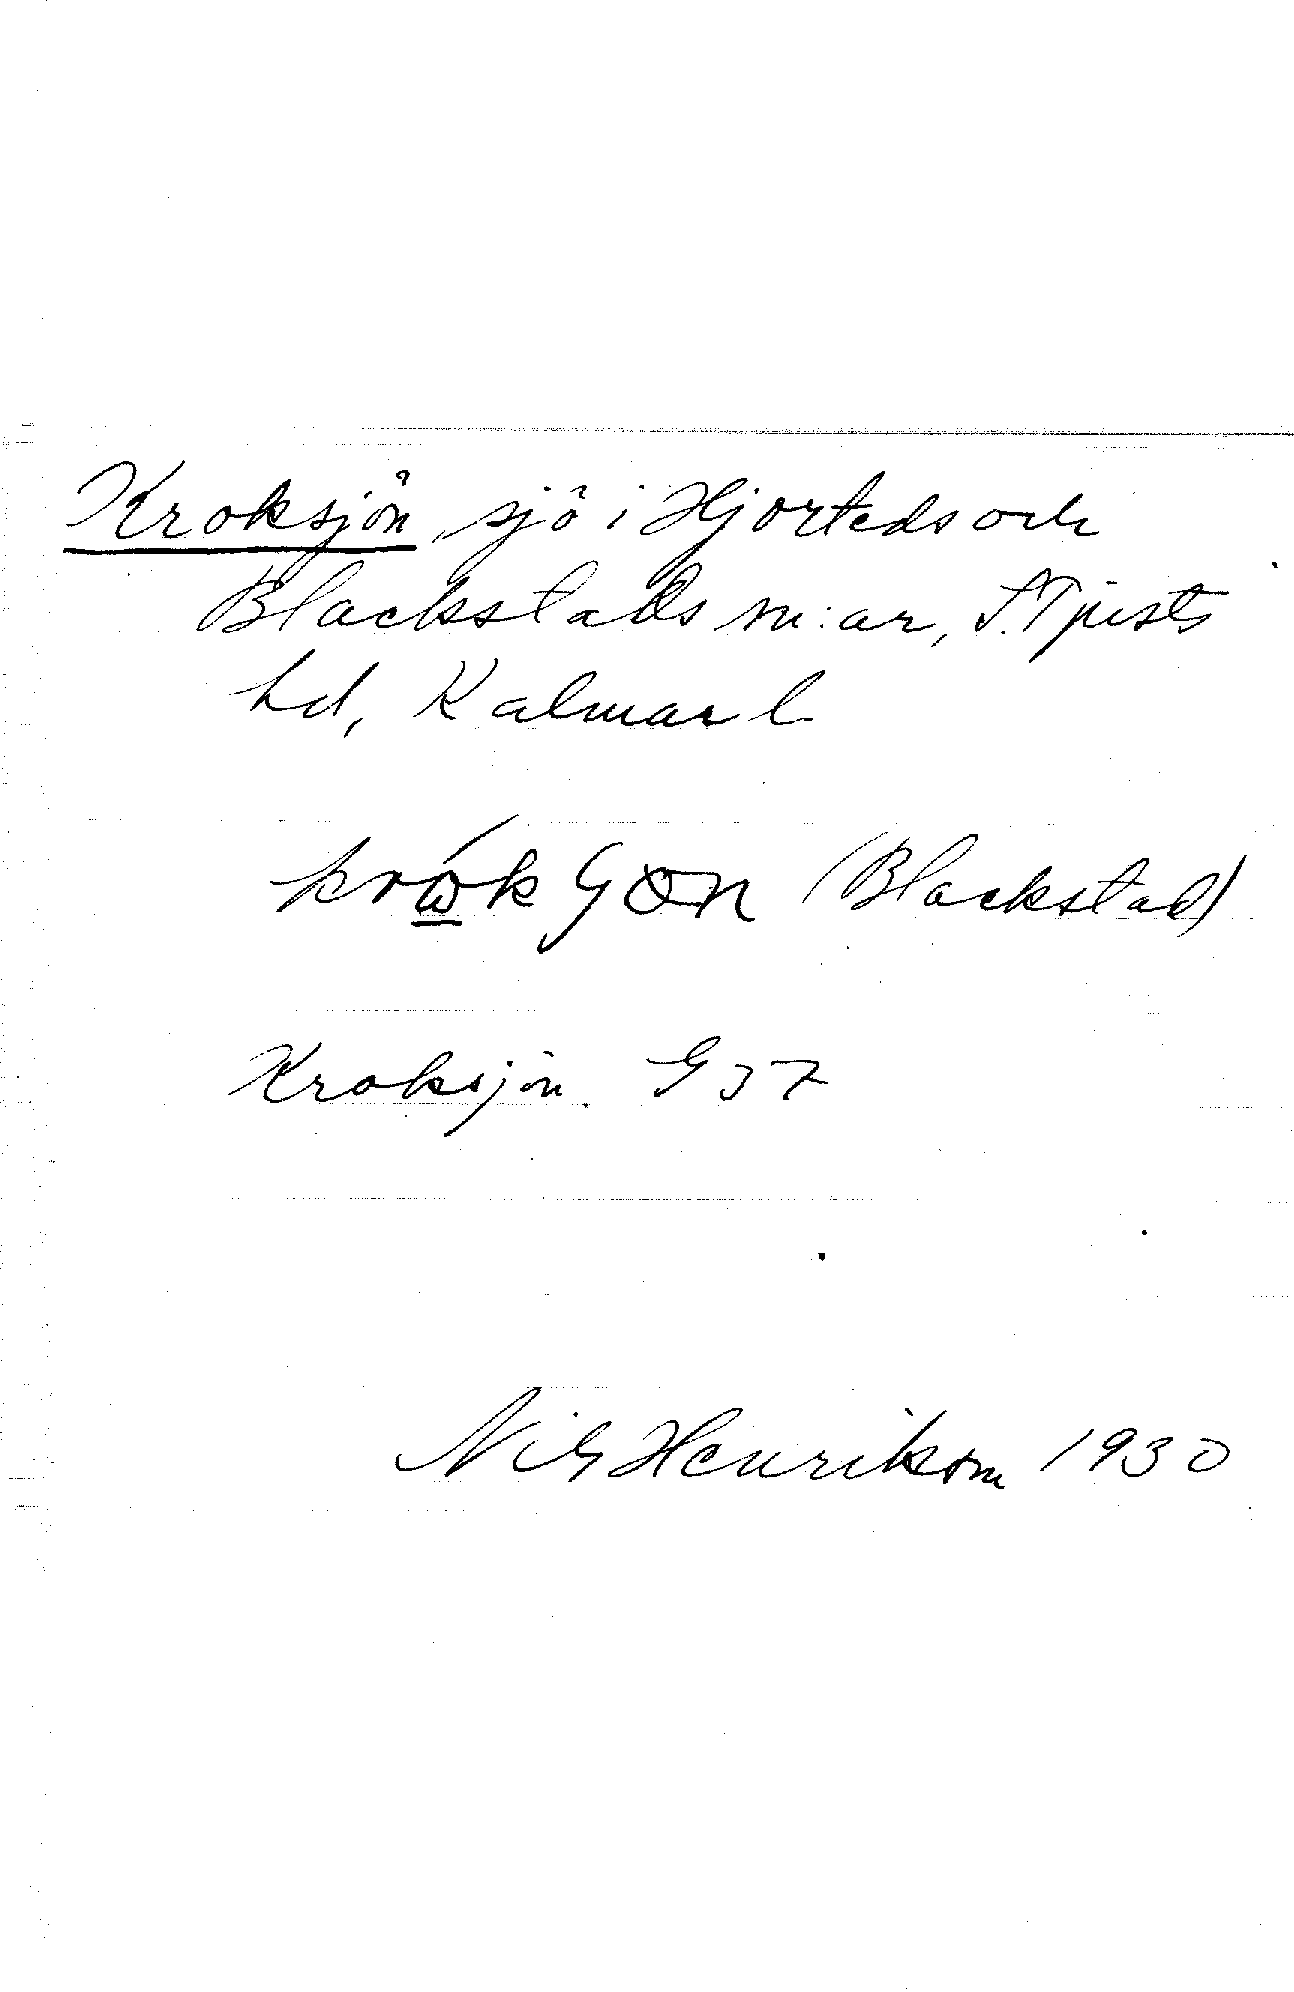 Kroksjön, sjö i Hjorteds och
Blackstads sn:ar, S. Tjusts
hd, Kalmar l.
(Blackstad)
Kroksjön. G 37
Nils Henrikson 1930